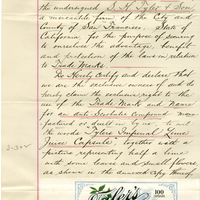 the undersigned S. H. Tyler & Son
a mercantile firm of the City and
County of San Francisco, State of
California for the purpose of securing
to ourselves the advantage, benefit
and protection of the law in relation
to Trade Marks
Do Hereby Certify and declare that
we are the exclusive owners of and do
hereby claim the exclusive right to the
use of the Trade Mark and Name
for an anti-Scorbutic Compound manu
factured or dealt in by us to wit
the words Tylers Imperial Lime
Juice Capsules, together with a
picture representing half a lime
with some leaves and small flowers
as shown in the annexed copy thereof
Tyler's
100